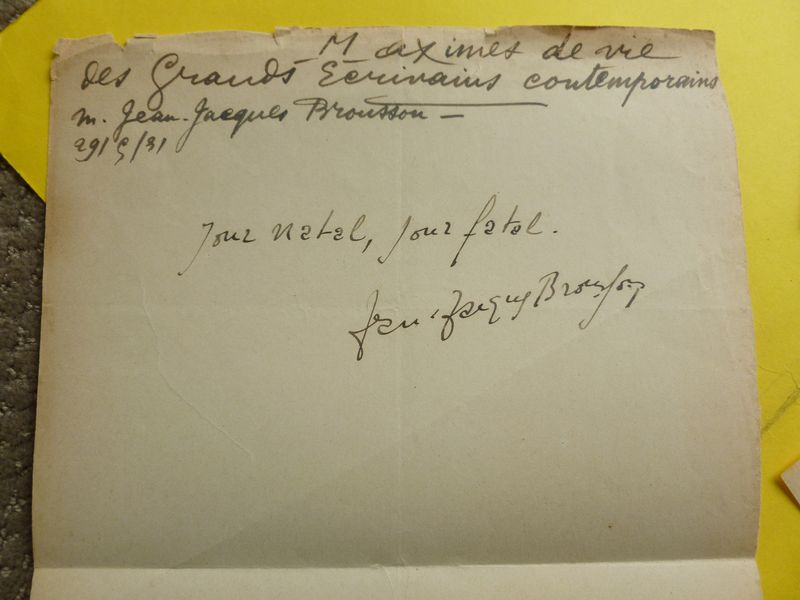 Maximes de vie
des Grands Écrivains contemporains
M. Jean-Jacques Brousson —
29/5/31
Jour natal, jour fatal.
Jean-Jacques Brousson